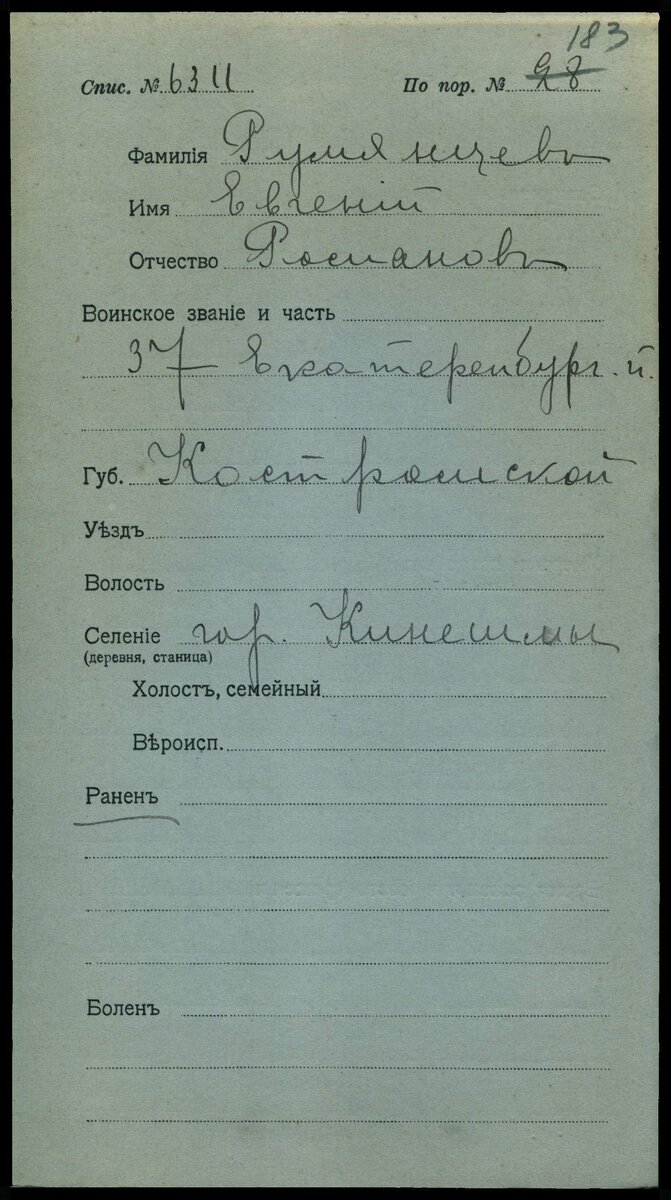 183
Спис. № 6311 По пор. № 28
Фамилія Румянцевъ
Имя Евгеній
Отчество Романовъ
Воинское званіе и часть
37 Екатеренбург. п.
Губ. Костромской
Уѣздъ
Волость
Селеніе гор. Кинешмы
(деревня, станица)
Холостъ, семейный
Вѣроисп.
Раненъ
Боленъ